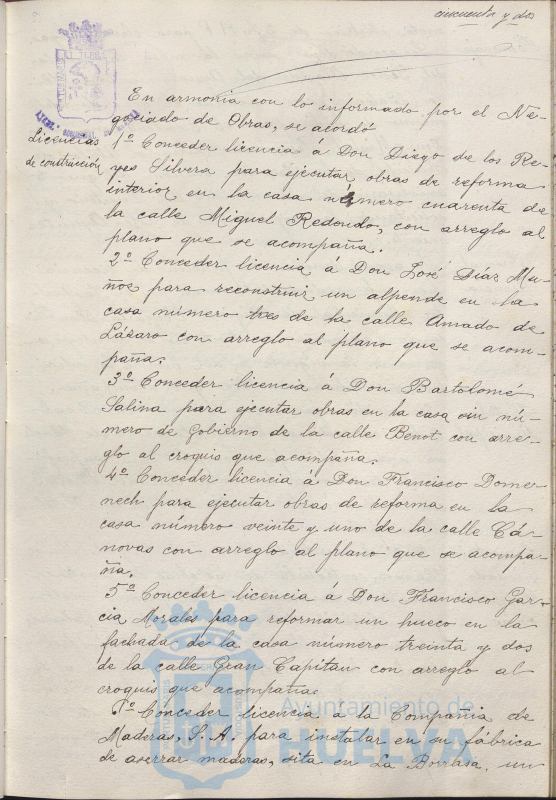 cincuenta y dos
En armonia con lo informado por el Ne-
gociado de Obras, se acordó
Licencias
de construcción
1º Conceder licencia á Don Diego de los Re-
yes Silvera para ejecutar obras de reforma
interior en la casa número cuarenta de
la calle Miguel Redondo, con arreglo al
plano que se acompaña.
2º Conceder licencia á Don José Díaz Mu-
ños para reconstruir un alpende en la
casa número tres de la calle Amado de
Lázaro con arreglo al plano que se acom-
paña.
3º Conceder licencia á Don Bartolomé
Salina para ejecutar obras en la casa sin nú-
mero de Gobierno de la calle Benot con arre-
glo al croquis que acompaña.
4º Conceder licencia á Don Francisco Dome-
nech para ejecutar obras de reforma en la
casa número veinte y uno de la calle Cá-
novas con arreglo al plano que se acompa-
ña.
5º Conceder licencia á Don Francisco Gar-
cia Morales para reformar un hueco en la
fachada de la casa número treinta y dos
de la calle Gran Capitan con arreglo al
croquis que acompaña.
6º Conceder licencia á la Compañia de
Maderas, S. A. para instalar en su fábrica
de aserrar maderas, sita en La Borrasa, un
Ayuntamiento de
HUELVA